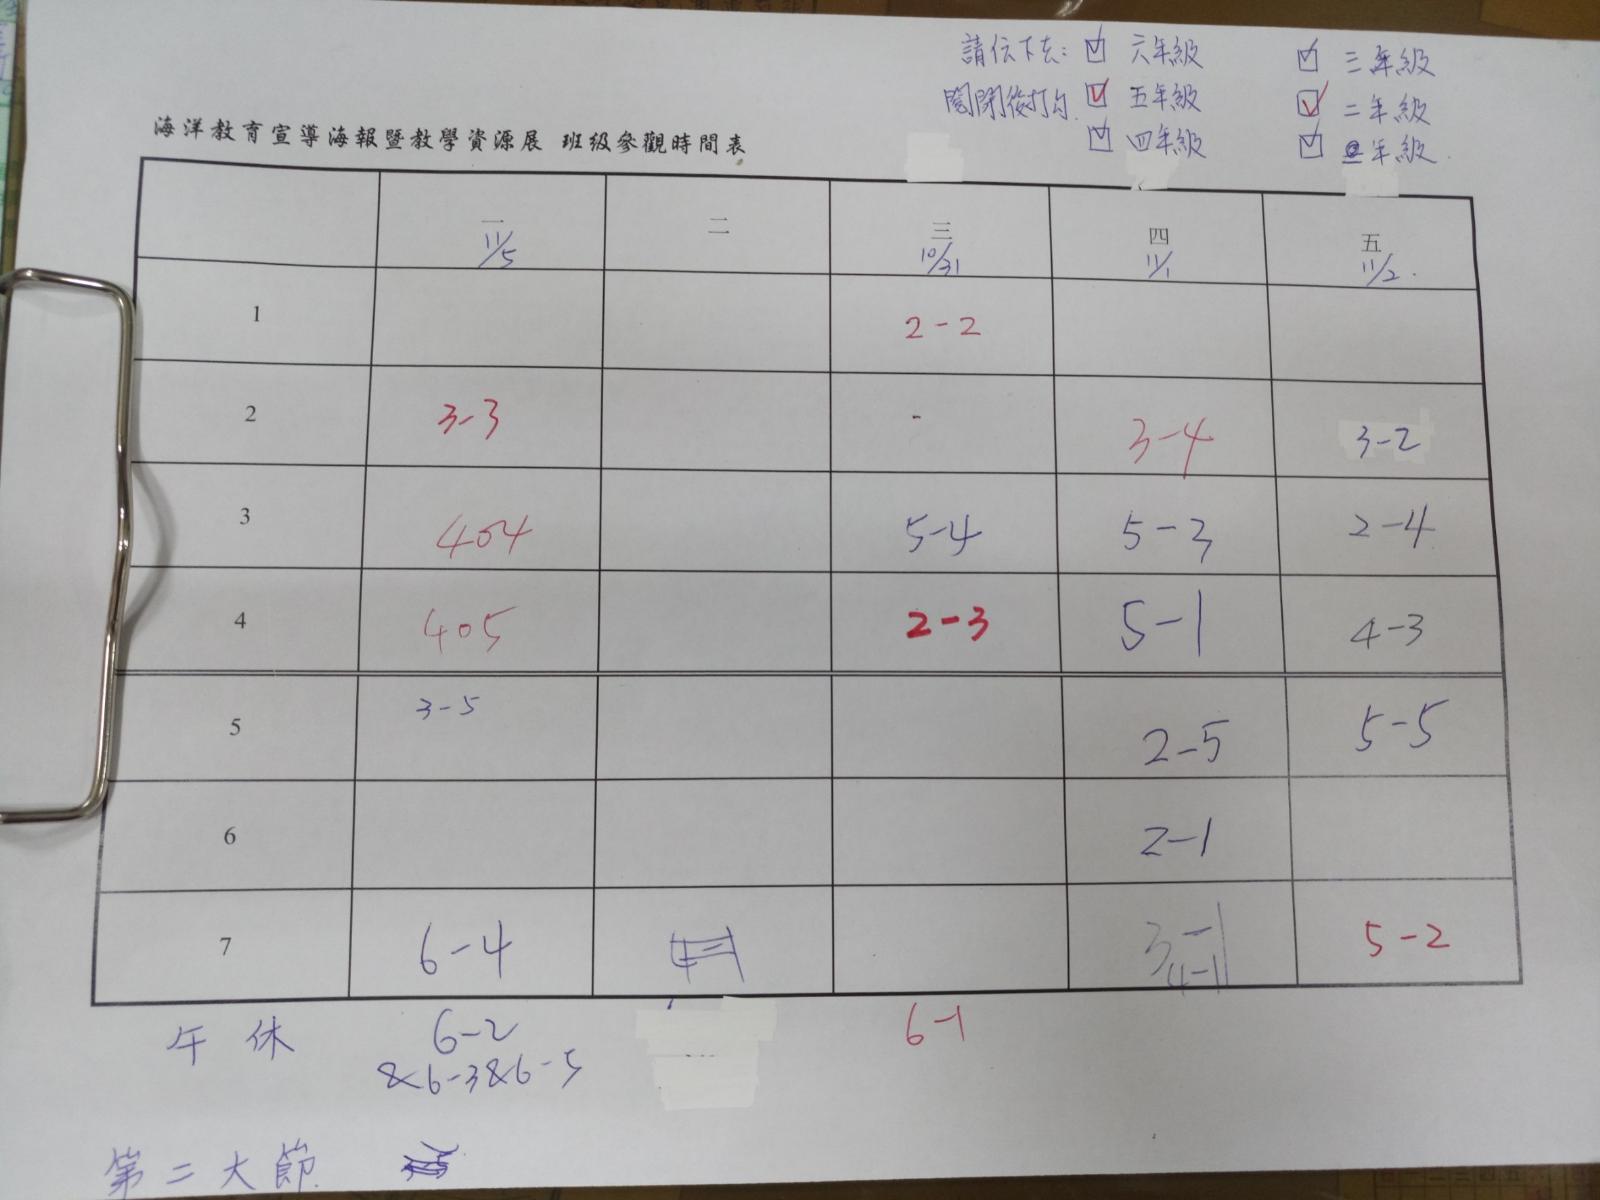 請傳下去: 六年級 三年級
閱後打勾 五年級 二年級
四年級 一年級
海洋教育宣導海報暨教學資源展 班級參觀時間表
一 二 三 四 五
11/5 10/31 11/1 11/2
1 2-2
2 3-3 - 3-4 3-2
3 404 5-4 5-3 2-4
4 405 2-3 5-1 4-3
5 3-5 2-5 5-5
6 2-1
7 6-4 3-1 5-2
4-1
午休 6-2 6-1
&6-3&6-5
第二大節